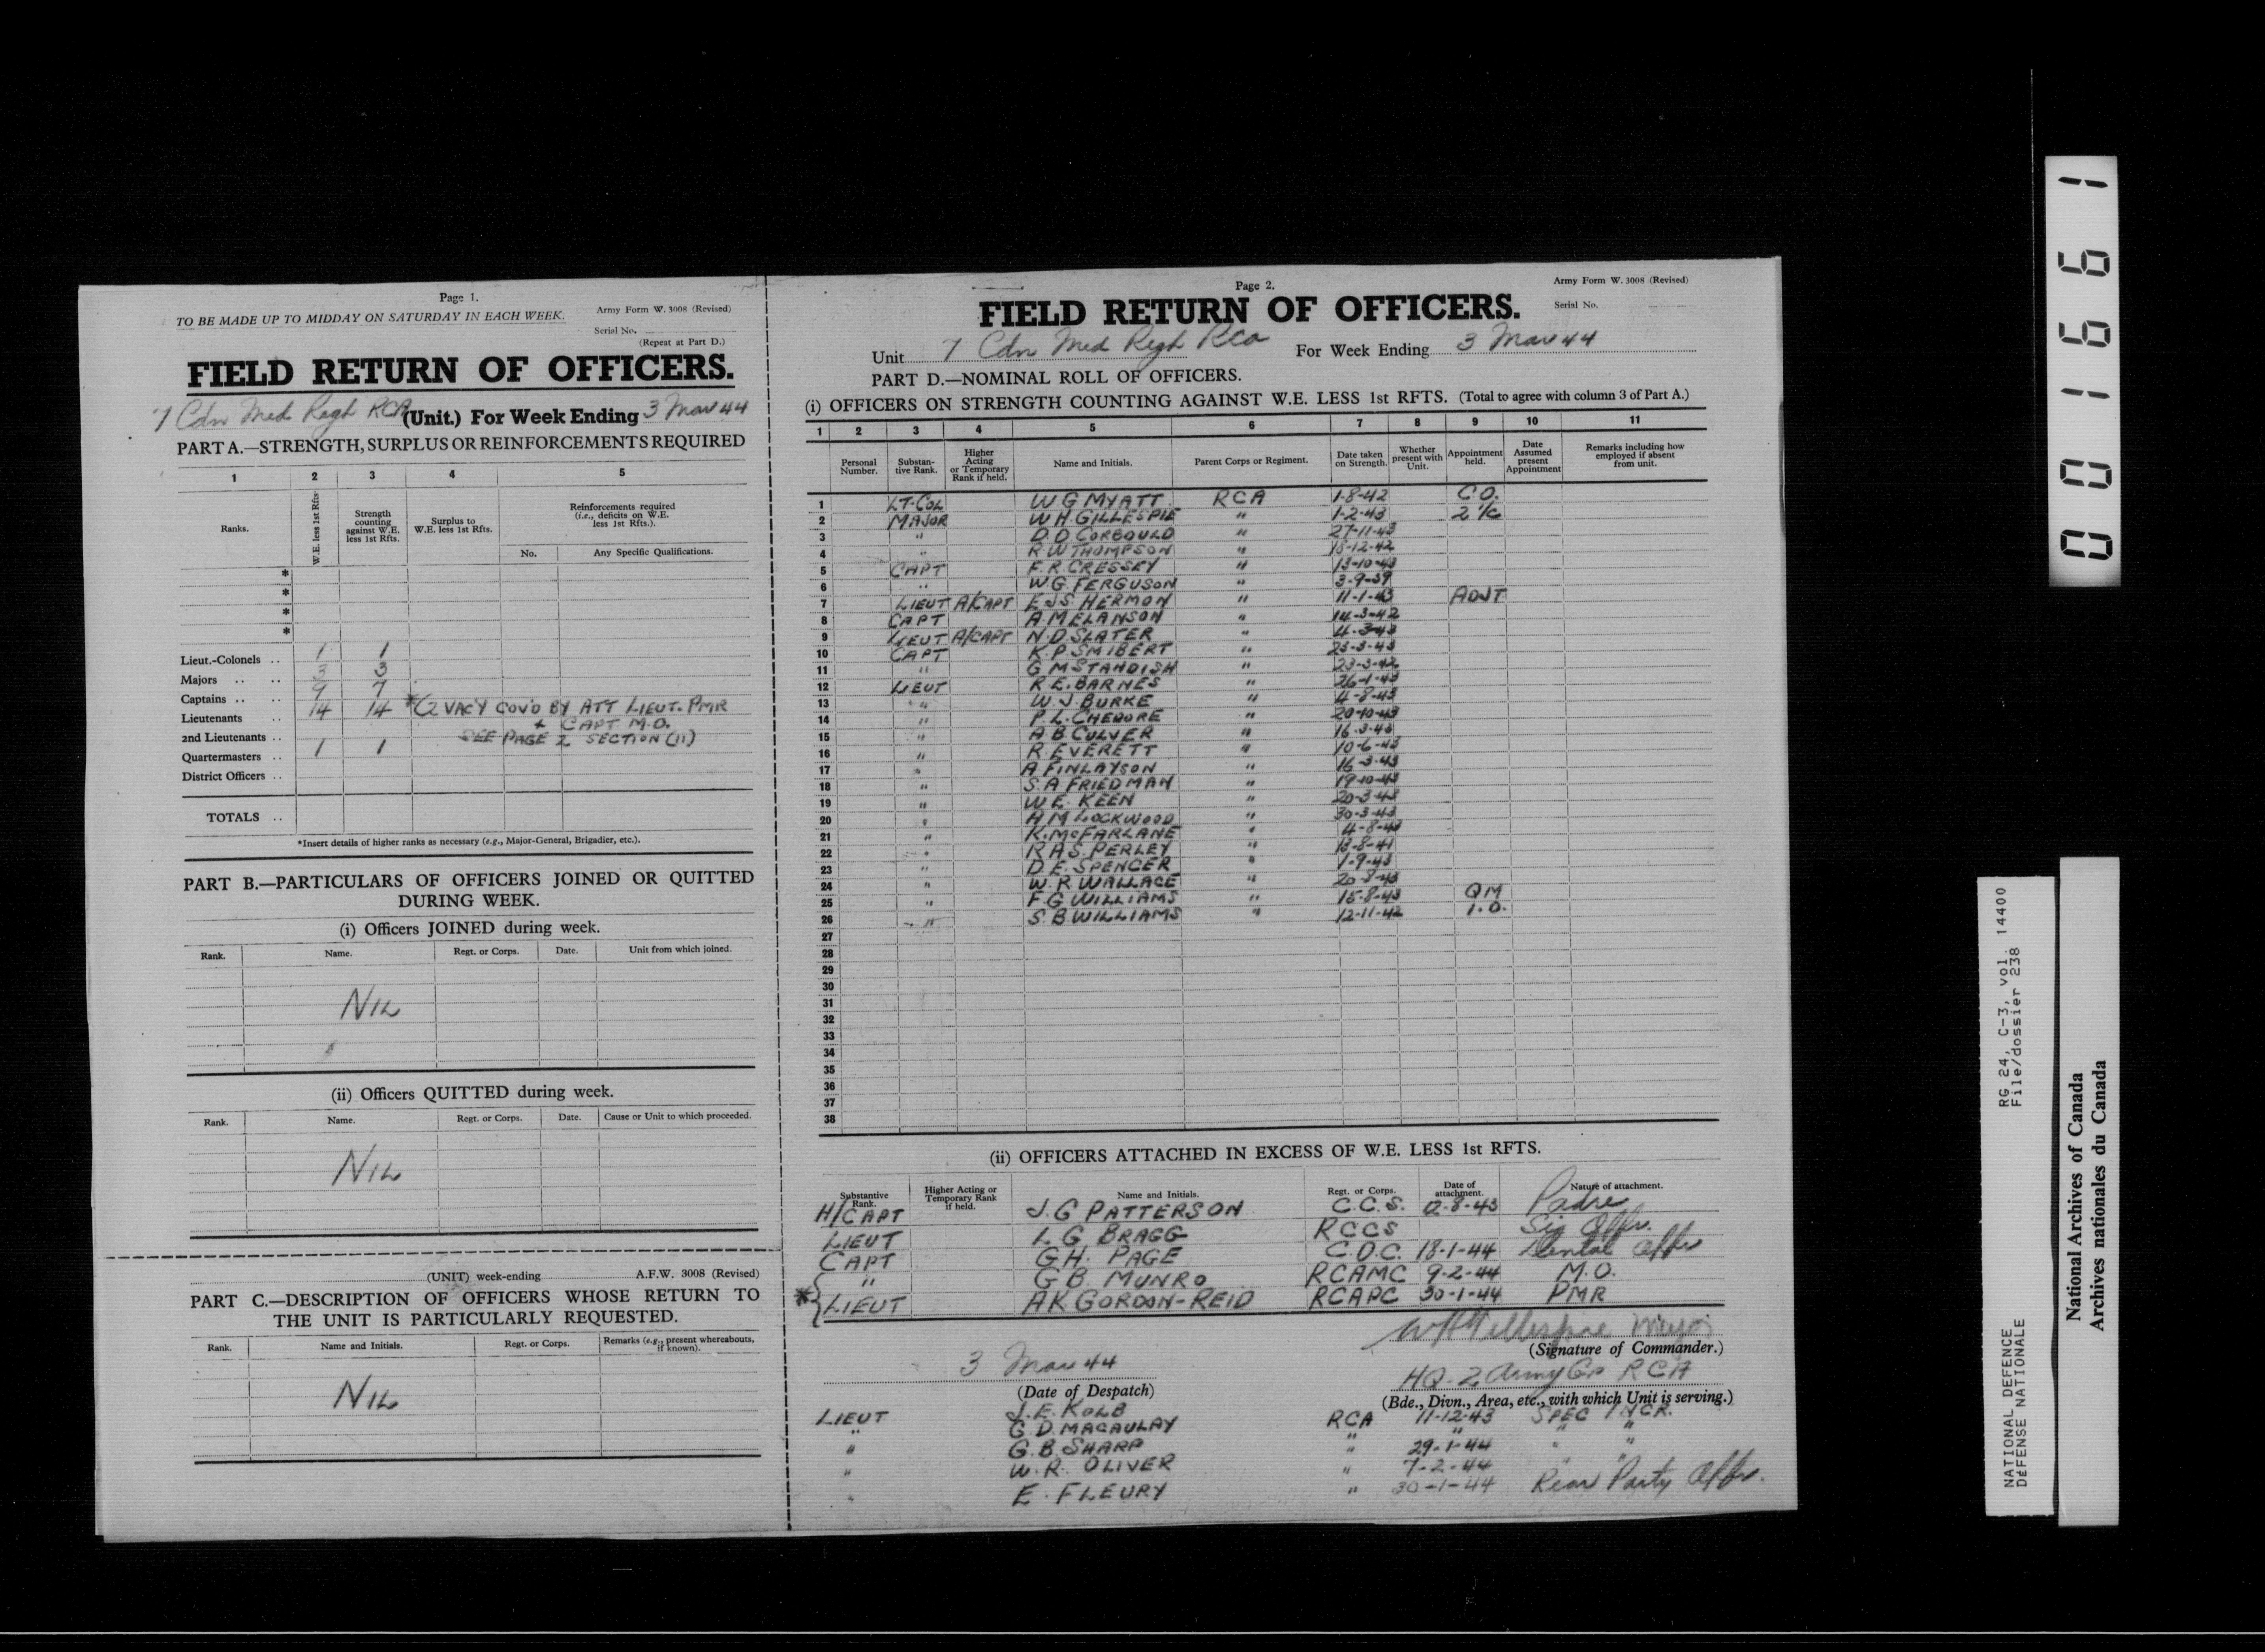 Page 1.
TO BE MADE UP TO MIDDAY ON SATURDAY IN EACH WEEK.
Army Form W. 3008 (Revised)
Serial No.
(Repeat at Part D.)
FIELD RETURN OF OFFICERS.
7 Cdn Med Regt RCA (Unit.) For Week Ending 3 Mar 44
PART A.—STRENGTH, SURPLUS OR REINFORCEMENTS REQUIRED
1 2 3 4 5
Ranks.
W.E. less 1st Rfts.
Strength counting against W.E. less 1st Rfts.
Surplus to W.E. less 1st Rfts.
Reinforcements required (i.e., deficits on W.E. less 1st Rfts.).
No. Any Specific Qualifications.
*
*
*
*
Lieut.-Colonels .. 1 1
Majors .. .. 3 3
Captains .. .. 9 7
Lieutenants .. 14 14 *(2 VAC'Y COV'D BY ATT LIEUT. PMR
+ CAPT M.O.
2nd Lieutenants .. SEE PAGE 2 SECTION (II)
Quartermasters .. 1 1
District Officers ..
TOTALS ..
*Insert details of higher ranks as necessary (e.g., Major-General, Brigadier, etc.).
PART B.—PARTICULARS OF OFFICERS JOINED OR QUITTED
DURING WEEK.
(i) Officers JOINED during week.
Rank. Name. Regt. or Corps. Date. Unit from which joined.
NIL
(ii) Officers QUITTED during week.
Rank. Name. Regt. or Corps. Date. Cause or Unit to which proceeded.
NIL
(UNIT) week-ending A.F.W. 3008 (Revised)
PART C.—DESCRIPTION OF OFFICERS WHOSE RETURN TO
THE UNIT IS PARTICULARLY REQUESTED.
Rank. Name and Initials. Regt. or Corps. Remarks (e.g., present whereabouts, if known).
NIL
Page 2.
Army Form W. 3008 (Revised)
FIELD RETURN OF OFFICERS.
Serial No.
Unit 7 Cdn Med Regt RCA For Week Ending 3 Mar 44
PART D.—NOMINAL ROLL OF OFFICERS.
(i) OFFICERS ON STRENGTH COUNTING AGAINST W.E. LESS 1st RFTS. (Total to agree with column 3 of Part A.)
1 2 3 4 5 6 7 8 9 10 11
Personal Number.
Substantive Rank.
Higher Acting or Temporary Rank if held.
Name and Initials.
Parent Corps or Regiment.
Date taken on Strength.
Whether present with Unit.
Appointment held.
Date Assumed present Appointment
Remarks including how employed if absent from unit.
1 LT-COL W G MYATT RCA 1-8-42 C.O.
2 MAJOR W H GILLESPIE " 1-2-43 2 I/C
3 " D.D. CORBOULD " 27-11-43
4 " R W THOMPSON " 18-12-42
5 CAPT F. R. CRESSEY " 13-10-43
6 " W.G. FERGUSON " 3-9-39
7 LIEUT A/CAPT E J S HERMON " 11-1-43 ADJT
8 CAPT A. MELANSON " 14-3-42
9 LIEUT A/CAPT N. D. SLATER " 4-3-43
10 CAPT K. P. SMIBERT " 23-3-43
11 " G M STANDISH " 23-3-42
12 LIEUT R E. BARNES " 26-1-43
13 " W. J. BURKE " 4-8-43
14 " P. L. CHEDORE " 20-10-43
15 " A B CULVER " 16-3-43
16 " R. EVERETT " 10-6-43
17 " A FINLAYSON " 16-3-43
18 " S. A FRIEDMAN " 19-10-43
19 " W E. KEEN " 20-3-43
20 " A M LOCKWOOD " 30-3-43
21 " K. McFARLANE " 4-8-43
22 " R A S. PERLEY " 13-8-41
23 " D. E. SPENCER " 1-9-43
24 " W. R WALLACE " 20-8-43
25 " F. G WILLIAMS " 15-8-43 QM
26 " S. B. WILLIAMS " 12-11-42 I.O.
27
28
29
30
31
32
33
34
35
36
37
38
(ii) OFFICERS ATTACHED IN EXCESS OF W.E. LESS 1st RFTS.
Substantive Rank. Higher Acting or Temporary Rank if held. Name and Initials. Regt. or Corps. Date of attachment. Nature of attachment.
H/CAPT J. G PATTERSON C.C.S. 2-8-43 Padre
LIEUT L G BRAGG RCCS Sig Offr.
CAPT G.H. PAGE C.D.C. 18-1-44 Dental Offr
" G B. MUNRO RCAMC 9-2-44 M.O.
* LIEUT A K GORDON-REID RCAPC 30-1-44 PMR
WH Gillespie Major
(Signature of Commander.)
3 Mar 44
(Date of Despatch)
HQ. 2 Army Gp RCA
(Bde., Divn., Area, etc., with which Unit is serving.)
LIEUT J. E. KOLB RCA 11-12-43 SPEC INCR.
" G. D. MACAULAY " " " "
" G. B. SHARP " 29-1-44 " "
" W. R. OLIVER " 7-2-44 " "
" E. FLEURY " 30-1-44 Rear Party Offr.
001661
RG 24, C-3, vol. 14400
File/dossier 238
NATIONAL DEFENCE
DÉFENSE NATIONALE
National Archives of Canada
Archives nationales du Canada